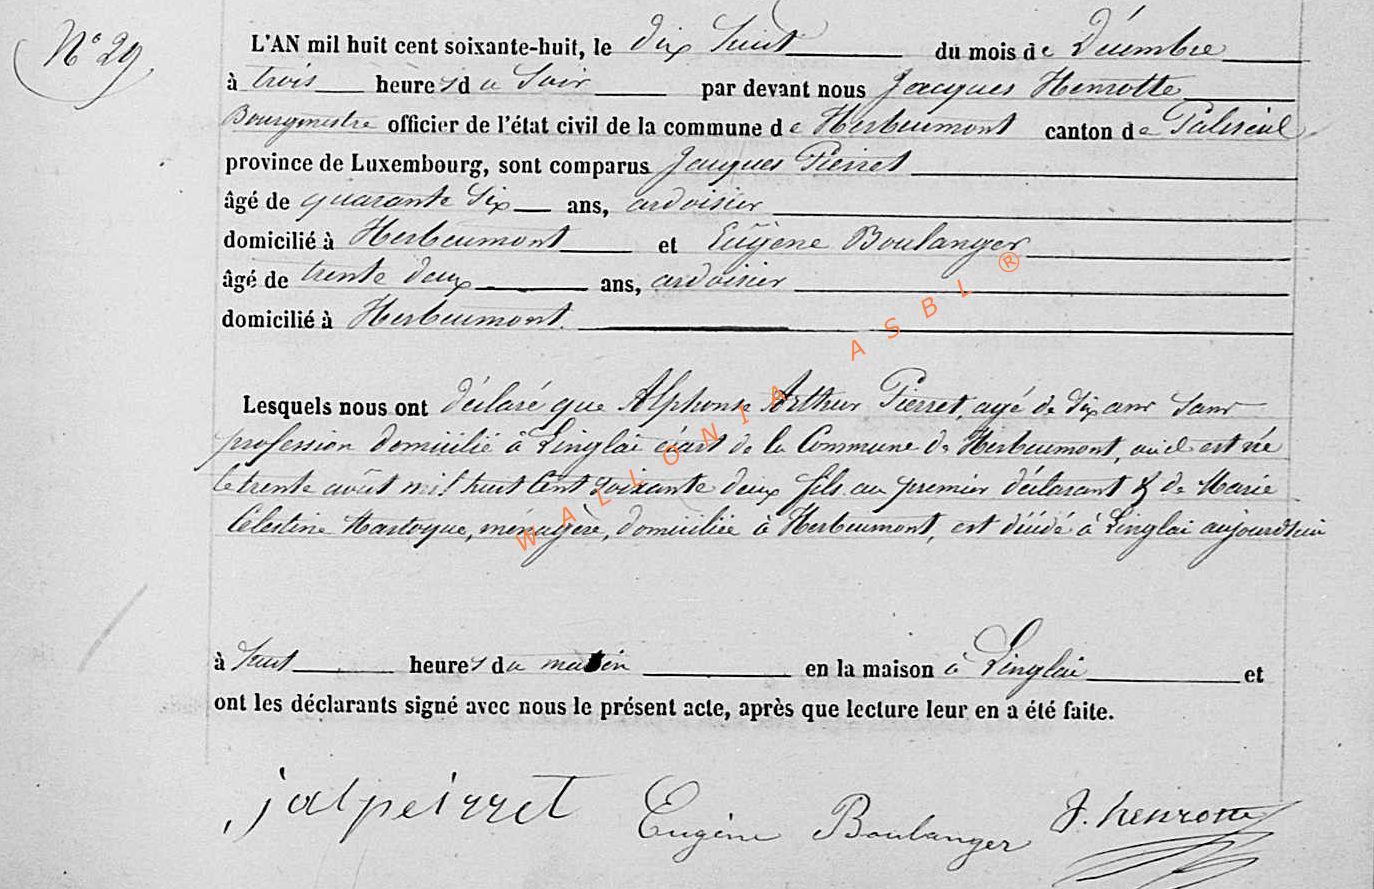 N° 29
L'AN mil huit cent soixante-huit, le dix huit du mois de Décembre
à trois heures du Soir par devant nous Jacques Henrotte
Bourgmestre officier de l'état civil de la commune de Herbeumont canton de Paliseul
province de Luxembourg, sont comparus Jacques Pierret
âgé de quarante Six ans, ardoisier
domicilié à Herbeumont et Eugène Boulanger
âgé de trente deux ans, ardoisier
domicilié à Herbeumont
Lesquels nous ont déclaré que Alphonse Arthur Pierret, agé de Six ans Sans
profession domicilié à Linglai écart de la Commune de Herbeumont, où il est né
le trente août mil huit Cent Soixante deux fils au premier déclarant & de Marie
Célestine Martoque, ménagère, domiciliée à Herbeumont, est décédé à Linglai aujourdhui
à huit heures du matin en la maison à Linglai et
ont les déclarants signé avec nous le présent acte, après que lecture leur en a été faite.
jalpeirret Eugène Boulanger J. henrotte
WALLONIA ASBL ®